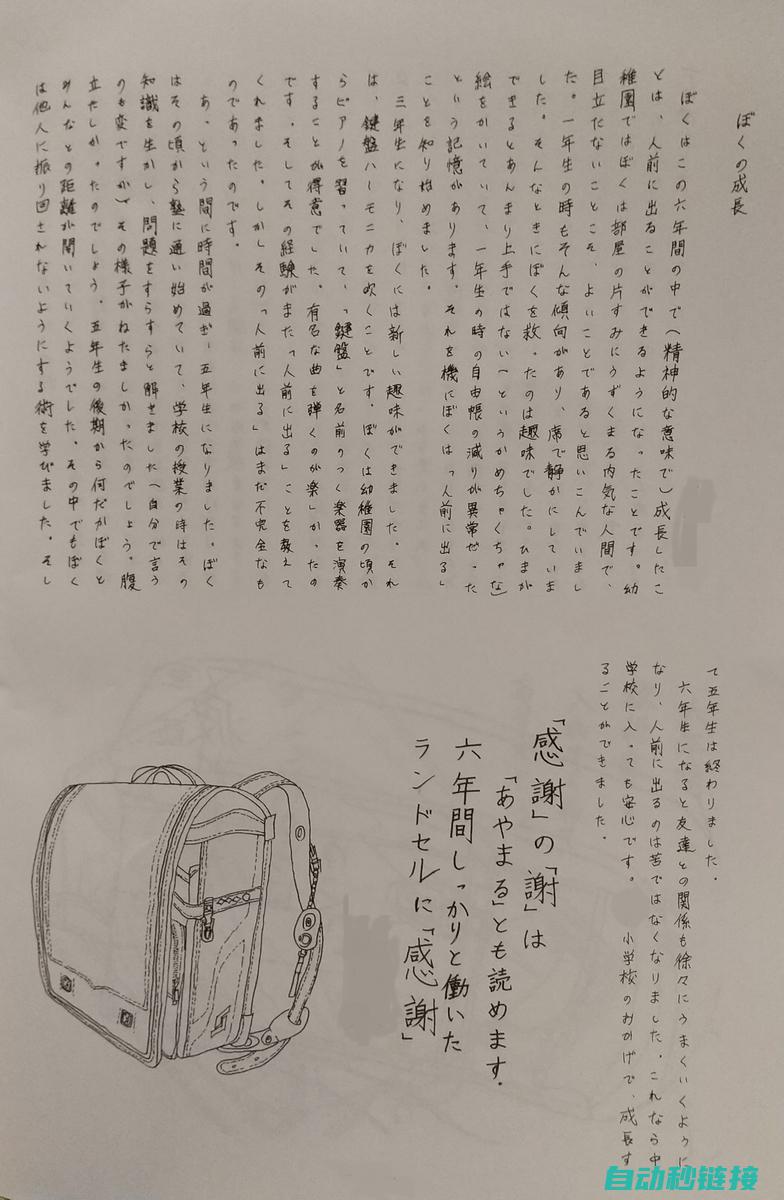 ぼくの成長
ぼくはこの六年間の中で(精神的な意味で)成長したこ
とは、人前に出ることができるようになったことです。幼
稚園ではぼくは部屋の片すみにうずくまる内気な人間で、
目立たないことこそ、よいことであると思いこんでいまし
た。一年生の時もそんな傾向があり、席で静かにしていま
した。そんなときにぼくを救ったのは趣味でした。ひまが
できるとあんまり上手ではない(というかめちゃくちゃな)
絵をかいていて、一年生の時の自由帳の減りが異常だった
という記憶があります。それを機にぼくは「人前に出る」
ことを知り始めました。
三年生になり、ぼくには新しい趣味ができました。それ
は、鍵盤ハーモニカを吹くことです。ぼくは幼稚園の頃か
らピアノを習っていて、「鍵盤」と名前のつく楽器を演奏
することが得意でした。有名な曲を弾くのが楽しかったの
です。そしてその経験がまた「人前に出る」ことを教えて
くれました。しかしその「人前に出る」はまだ不完全なも
のであったのです。
あっという間に時間が過ぎ、五年生になりました。ぼく
はその頃から塾に通い始めていて、学校の授業の時はその
知識を生かし、問題をすらすらと解きました(自分で言う
のも変ですが)。その様子がねたましかったのでしょう。腹
立たしかったのでしょう。五年生の後期から何だかぼくと
みんなとの距離が開いていくようでした。その中でもぼく
は他人に振り回されないようにする術を学びました。そし
て五年生は終わりました。
六年生になると友達との関係も徐々にうまくいくように
なり、人前に出るのは苦ではなくなりました。これなら中
学校に入っても安心です。 小学校のおかげで、成長す
ることができました。
「感謝」の「謝」は
「あやまる」とも読めます。
六年間しっかりと働いた
ランドセルに「感謝」
自动秒链接